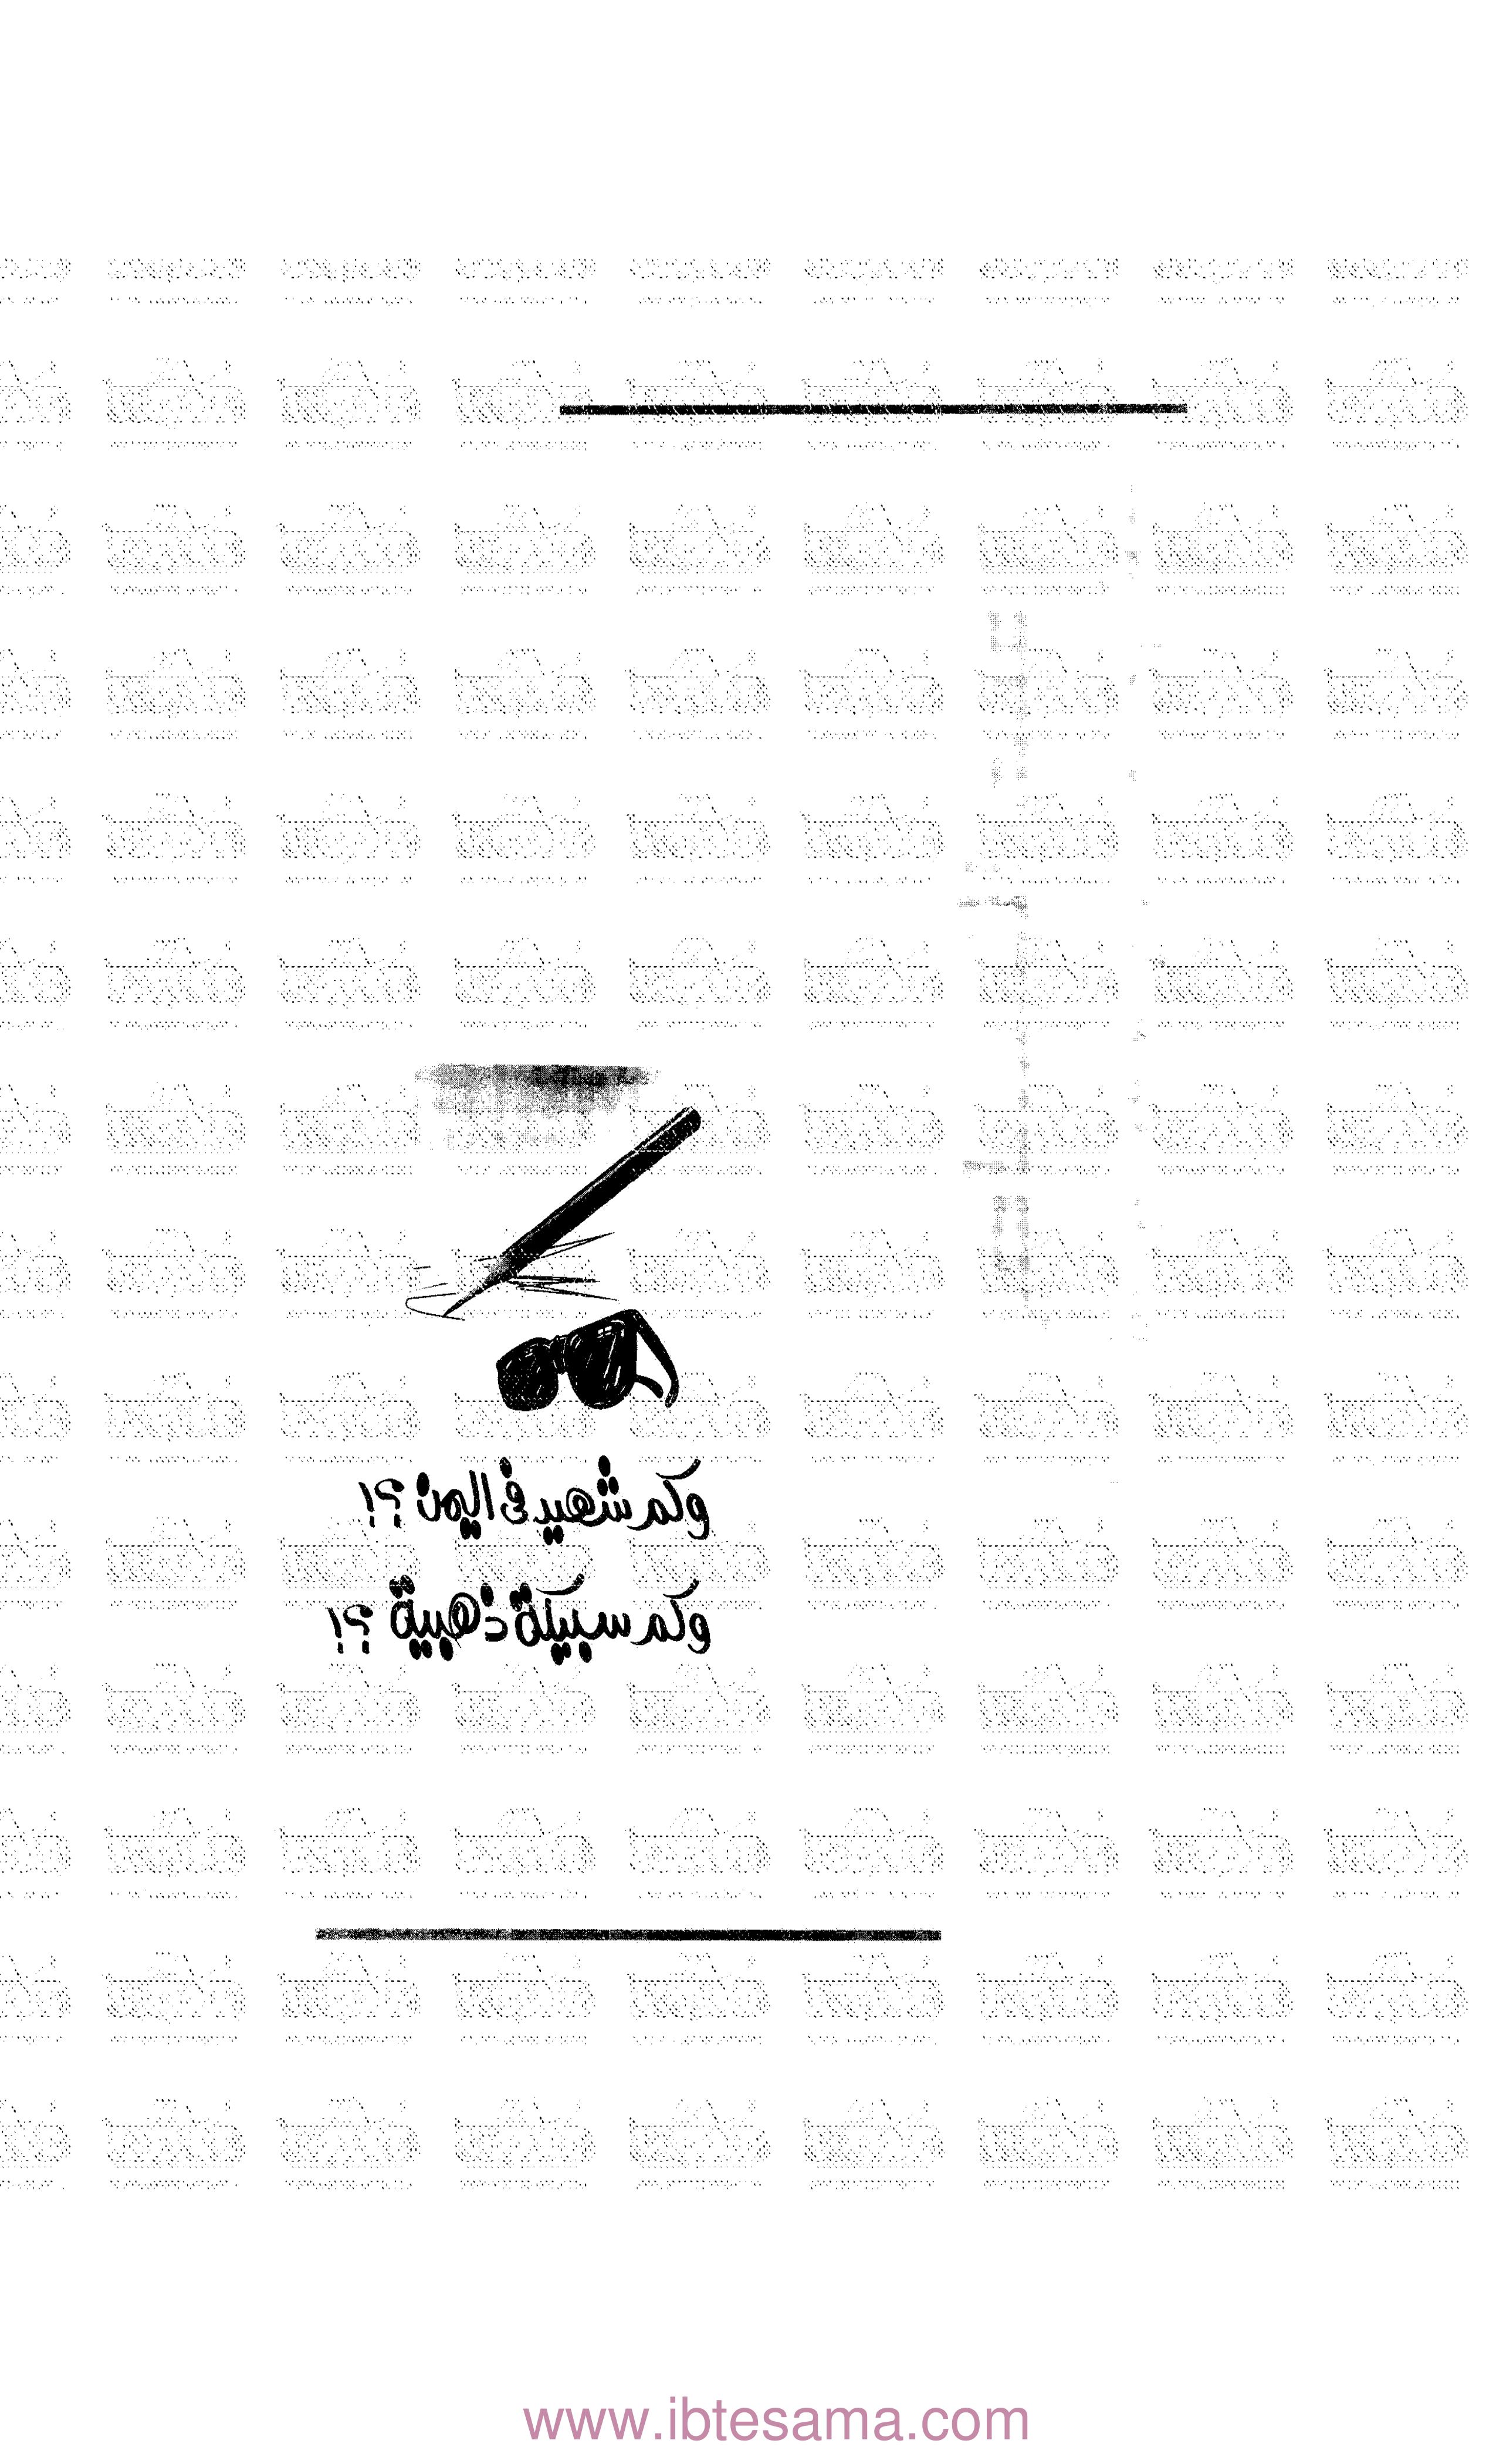 وكم شهيد فى اليمن ؟!
وكم سبيكة ذهبية ؟!
www.ibtesama.com